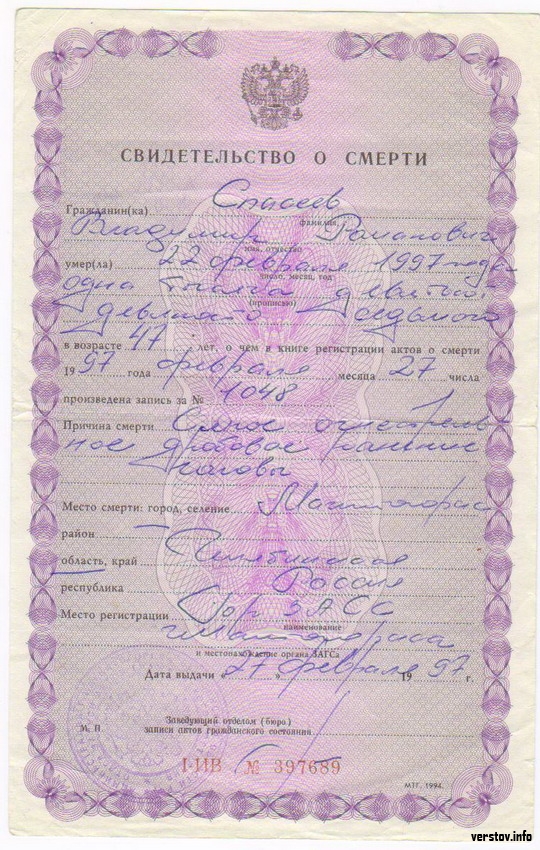 СВИДЕТЕЛЬСТВО О СМЕРТИ
Гражданин(ка) Спасеев
фамилия,
Владимир Романович
имя, отчество
умер(ла) 22 февраля 1997 года
число, месяц, год
одна тысяча девятьсот
(прописью)
девяносто седьмого
в возрасте 47 лет, о чем в книге регистрации актов о смерти
19 97 года февраля месяца 27 числа
произведена запись за № 1048
Причина смерти огнестрель
ное дробовое ранение
головы
Место смерти: город, селение Магнитогорск
район —
область, край Челябинская
республика Россия
Место регистрации Гор ЗАГС
наименование
г. Магнитогорска
и местонахождение органа ЗАГСа
Дата выдачи « 27 » февраля 19 97 г.
Заведующий отделом (бюро)
М. П. записи актов гражданского состояния
I-ИВ № 397689
МТГ, 1994.
verstov.info